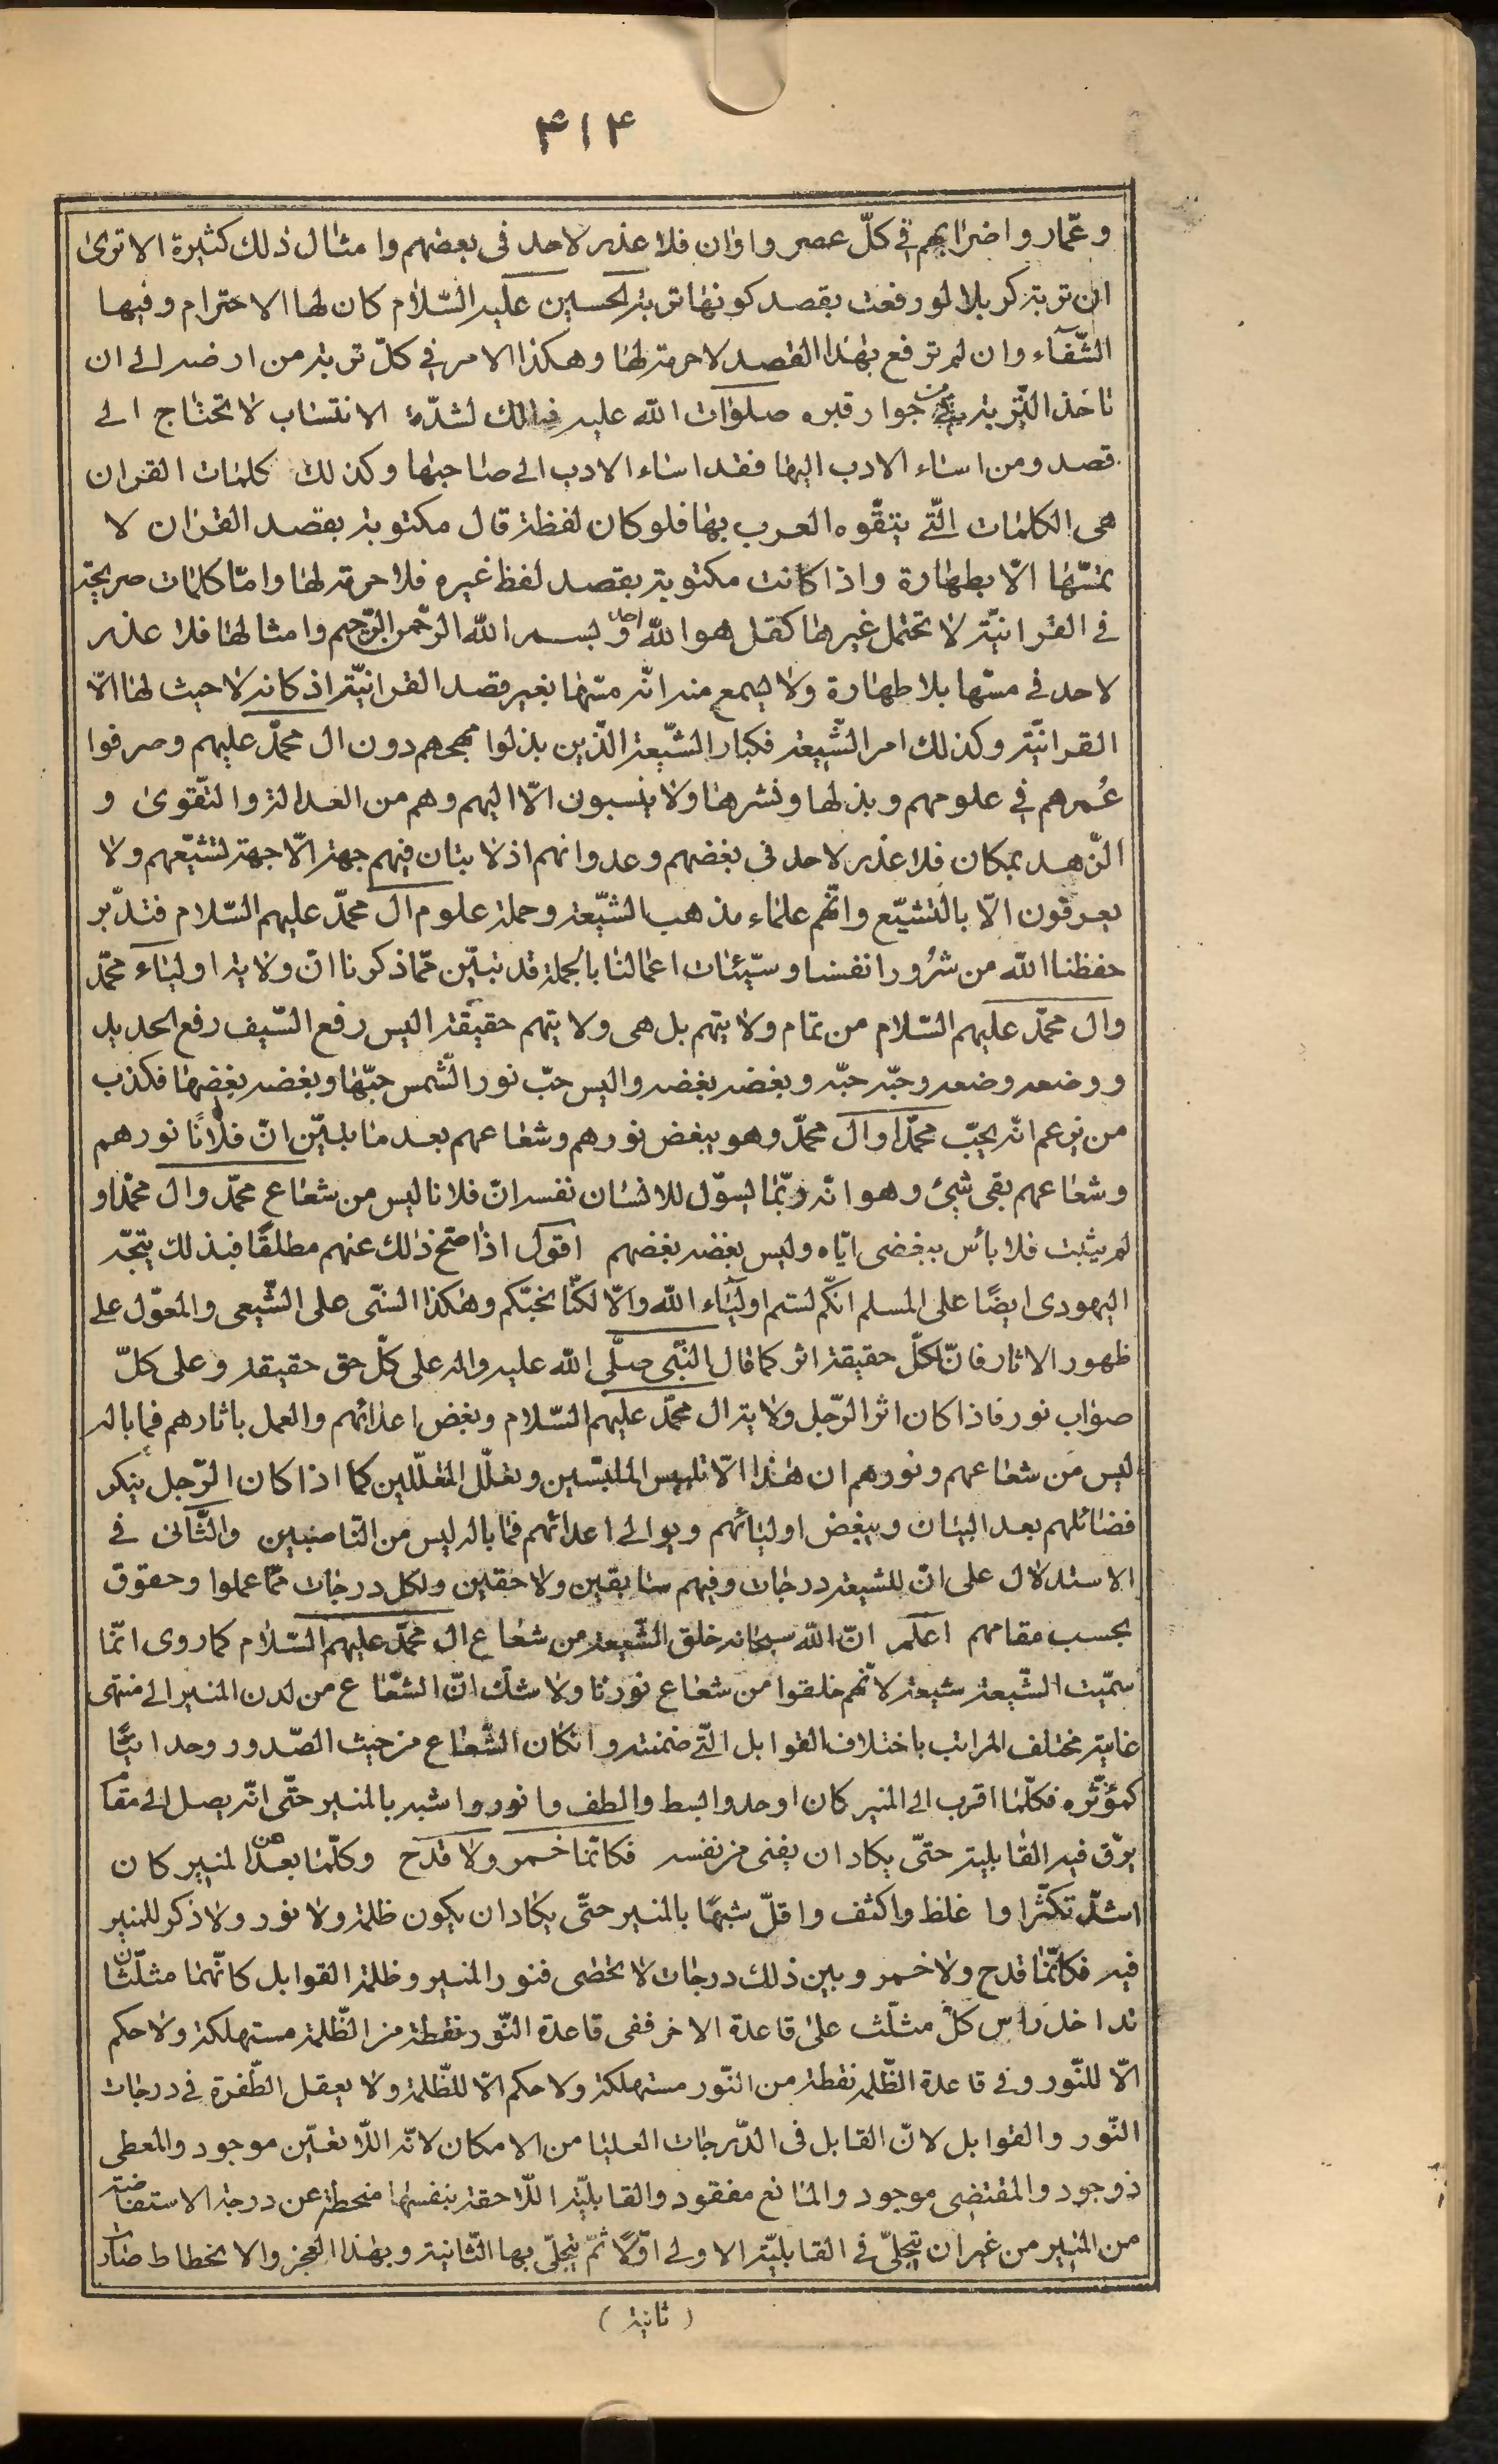 ۴۱۴
وعمّار واضرابهم فى كلّ عصر واوان فلا عذر لاحد فى بعضهم وامثال ذلك كثيرة الا ترى
ان تربة كربلا لو رفعت بقصد كونها تربة الحسين عليه السّلام كان لها الاحترام وفيها
الشّفآء وان لم ترفع بهذا القصد لا حرمة لها وهكذا الامر فى كلّ تربة من ارضه الى ان
تاخذ التّربة من جوار قبره صلوات الله عليه فذلك لشدّة الانتساب لا تحتاج الى
قصد ومن اساء الادب اليها فقد اساء الادب الى صاحبها وكذلك كلمات القران
هى الكلمات الّتى يتفّوه العرب بها فلو كان لفظة قال مكتوبة بقصد القران لا
تمسّها الّا بطهارة واذا كانت مكتوبة بقصد لفظ غيره فلا حرمة لها وامّا كلمات صريحة
فى القرانيّة لا تحتمل غيرها كقل هو الله احد وبسم الله الرّحمن الرّحيم وامثالها فلا عذر
لاحد فى مسّها بلا طهارة ولا يسمع منه انّه مسّها بغير قصد القرانيّة اذ كانه لا حيث لها الّا
القرانيّة وكذلك امر الشّيعة فكبار الشّيعة الّذين بذلوا مهجهم دون ال محمّد عليهم وصرفوا
عُمرهم فى علومهم وبذلها ونشرها ولا ينسبون الّا اليهم وهم من العدالة والتّقوى و
الزّهد بمكان فلا عذر لاحد فى بغضهم وعدوانهم اذ لا يبان فيهم جهة الّا جهة تشيّعهم ولا
يعرفون الّا بالتشيّع وانّهم علماء مذهب الشّيعة وحملة علوم ال محمّد عليهم السّلام فتدبّر
حفظنا الله من شرُور انفسنا وسيّئات اعمالنا بالجملة قد تبيّن ممّا ذكرنا انّ ولاية اوليآء محمّد
وال محمّد عليهم السّلام من تمام ولايتهم بل هى ولايتهم حقيقة اليس رفع السّيف رفع الحديد
ووضعه وضعه وحبّه حبّه وبغضه بغضه واليس حبّ نور الشّمس حبّها وبغضه بغضها فكذب
من يزعم انّه يحبّ محمّدا وال محمّد وهو يبغض نورهم وشعاعهم بعد ما تبيّن انّ فلانًا نورهم
وشعاعهم بقى شىئ وهو انّه ربّما يسوّل للانسان نفسه انّ فلانا ليس من شعاع محمّد وال محمّد او
لم يثبت فلا بأس ببغضى ايّاه وليس بغضه بغضهم اقول اذا صحّ ذلك عنهم مطلقًا فبذلك يتجّه
اليهودى ايضًا على المسلم انّكم لستم اوليآء الله والّا لكنّا نحبّكم وهكذا السنّى على الشّيعى والمعوّل على
ظهور الاثار فانّ لكلّ حقيقة اثر كما قال النّبى صلّى الله عليه واله على كلّ حق حقيقة وعلى كلّ
صواب نور فاذا كان اثر الرّجل ولاية ال محمّد عليهم السّلام وبغض اعدائهم والعمل باثارهم فما باله
ليس من شعاعهم ونورهم ان هذا الّا تلبيس الملبّسين وتعلّل المعلّلين كما اذا كان الرّجل ينكر
فضائلهم بعد البيان ويبغض اوليائهم ويوالى اعدائهم فما باله ليس من النّاصبين والثّانى فى
الاستدلال على انّ للشيعة درجات وفيهم سابقين ولاحقين ولكل درجات ممّا عملوا وحقوق
بحسب مقامهم اعلم انّ الله سبحانه خلق الشّيعة من شعاع ال محمّد عليهم السّلام كما روى انّما
سمّيت الشّيعة شيعة لانّهم خلقوا من شعاع نورنا ولا شك انّ الشّعاع من لدن المنير الى منتهى
غايته مختلف المراتب باختلاف القوابل الّتى ضمنته وانكان الشّعاع من حيث الصّدور وحدانيًّا
كمؤثّره فكلّما اقرب الى المنير كان اوحد وابسط والطف وانور واشبه بالمنير حتّى انّه يصل الى مقام
يرّق فيه القابلية حتّى يكاد ان يفنى من نفسه فكانّما خمر ولا قدح وكلّما بعد من المنير كان
اشدّ تكثّرا واغلظ واكثف واقلّ شبهًا بالمنير حتّى يكاد ان يكون ظلمة ولا نور ولا ذكر للمنير
فيه فكانّما قدح ولا خمر وبين ذلك درجات لا تحصى فنور المنير وظلمة القوابل كانّهما مثلّثان
تداخل راس كلّ مثلّث على قاعدة الاخر ففى قاعدة النّور نقطة من الظّلمة مستهلكة ولا حكم
الّا للنّور وفى قاعدة الظّلمة نقطة من النّور مستهلكة ولا حكم الّا للظّلمة ولا يعقل الطّفرة فى درجات
النّور والقوابل لانّ القابل فى الدّرجات العليا من الامكان لانّه اللّا تعيّن موجود والمعطى
ذو جود والمقتضى موجود والمانع مفقود والقابليّة اللّاحقة بنفسها منحطة عن درجة الاستفاضة
من المنير من غير ان يتجلّى فى القابليّة الاولى اوّلًا ثمّ يتجلّى بها الثّانية وبهذا العجز والانحطاط صارت
(ثانية)